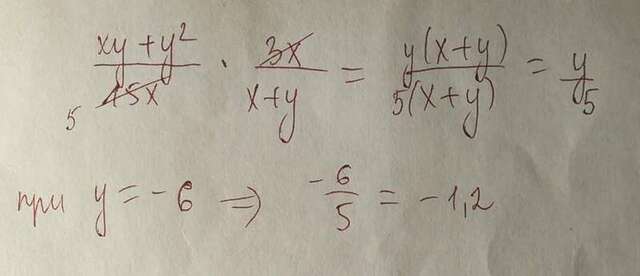 (xy + y²)/(15x) · (3x)/(x+y) = y(x+y)/5(x+y) = y/5
5
при y = -6 ⇒ -6/5 = -1,2